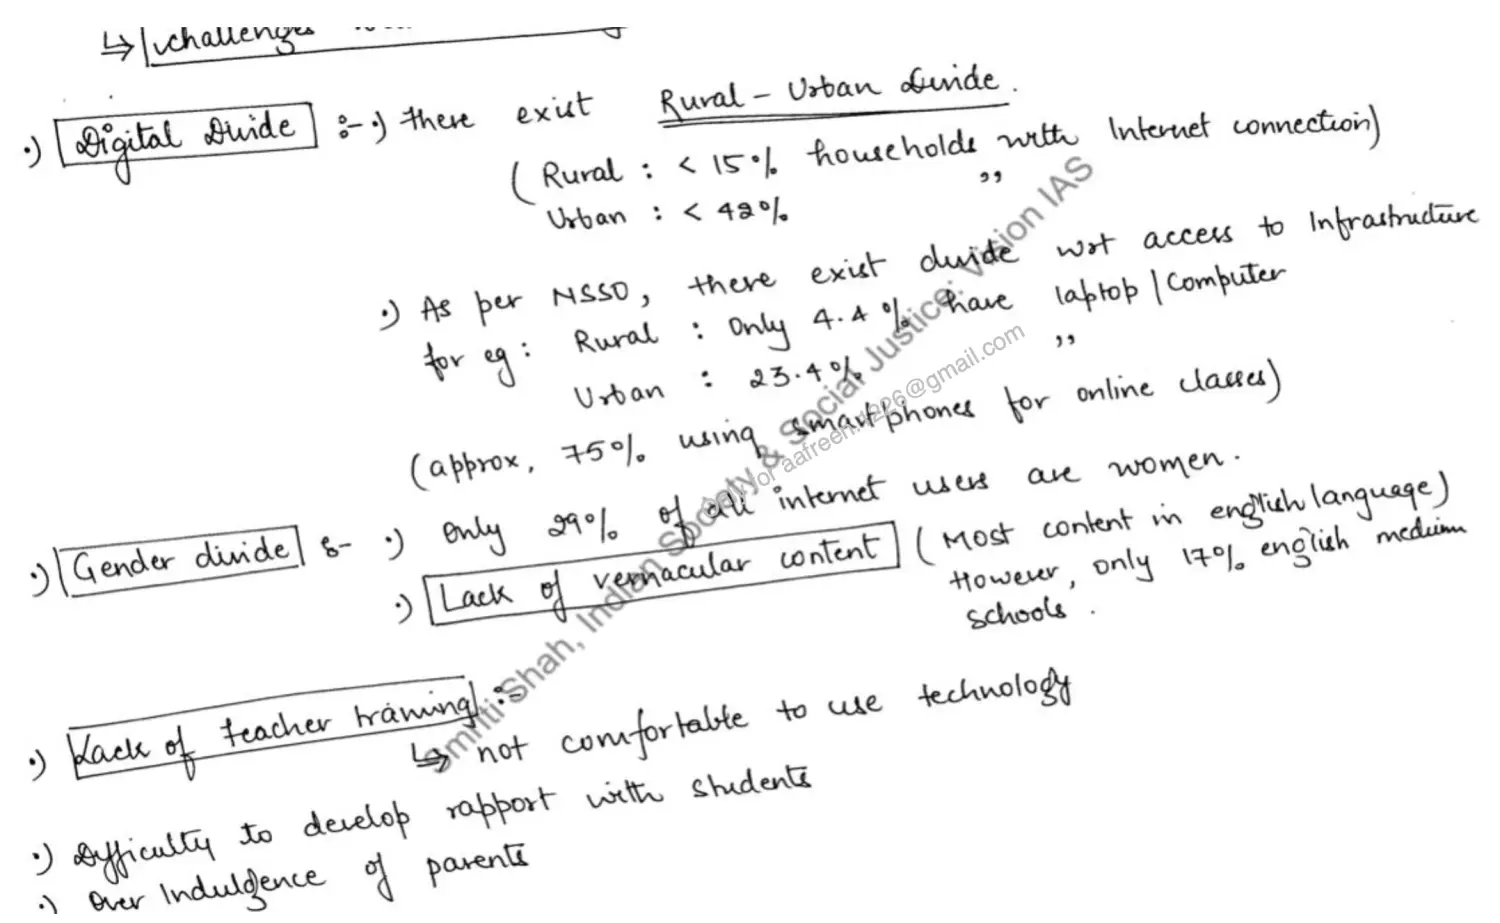 ↳ challenges
•) Digital Divide :- •) There exist Rural - Urban Divide.
(Rural : < 15% households with Internet connection)
Urban : < 42% ,,
•) As per NSSO, there exist divide wrt access to Infrastructure
for eg : Rural : Only 4.4% have laptop / Computer
Urban : 23.4% ,,
(approx. 75% using smartphones for online classes)
•) Gender divide :- •) Only 29% of all internet users are women.
•) Lack of vernacular content (Most content in english language)
However, only 17% english medium
schools.
•) Lack of teacher training :-
↳ not comfortable to use technology
•) Difficulty to develop rapport with students
•) Over Indulgence of parents
Smriti Shah, Indian Society & Social Justice: Vision IAS